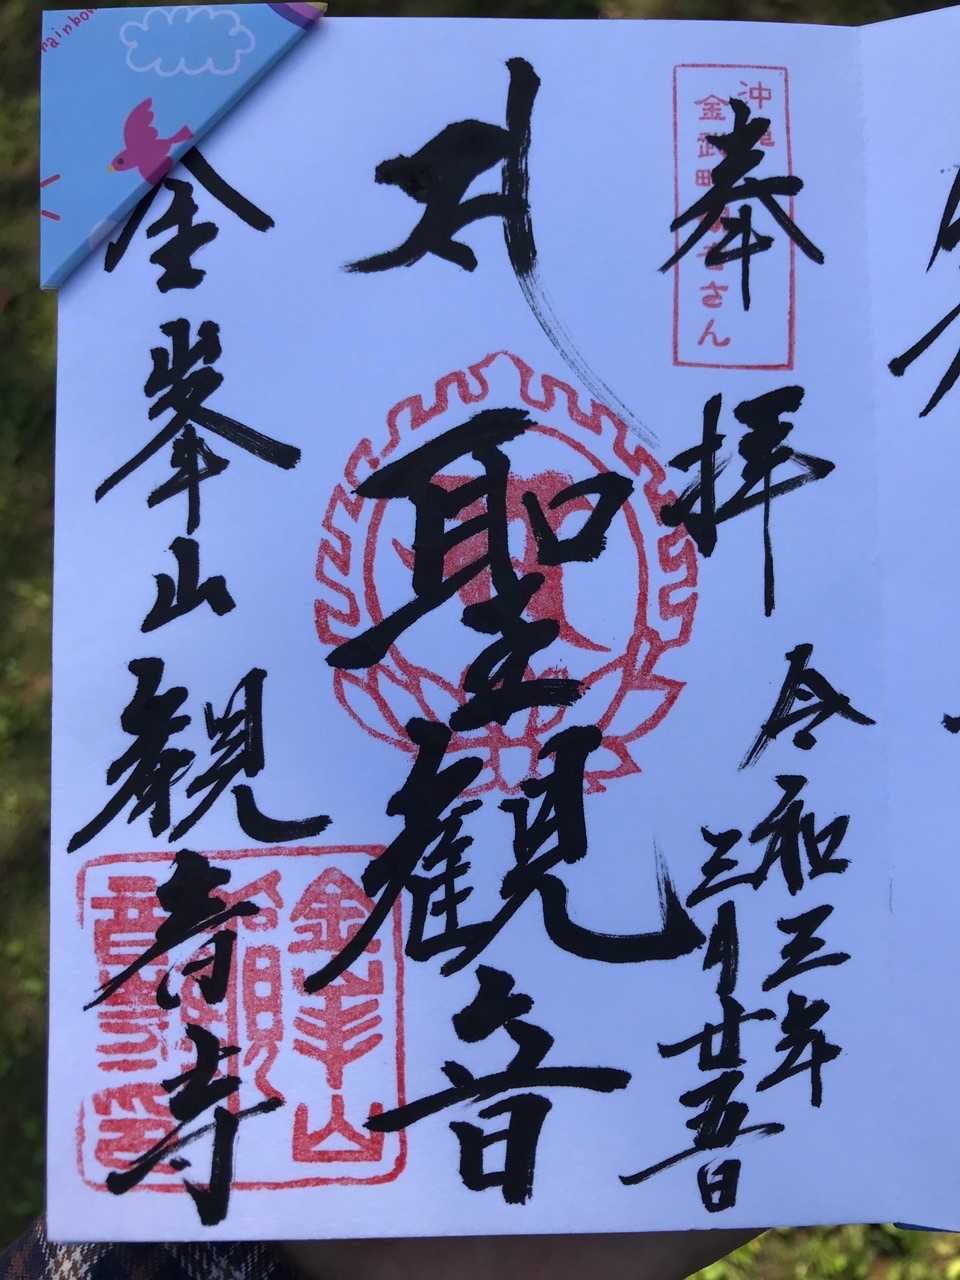 奉拝
令和三年
三月廿五日
聖観音
金峯山観音寺
沖縄
金武町
さん
金峯山
rainbow